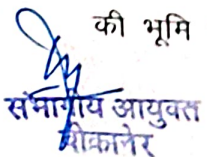 की भूमि
संभागीय आयुक्त
बीकानेर